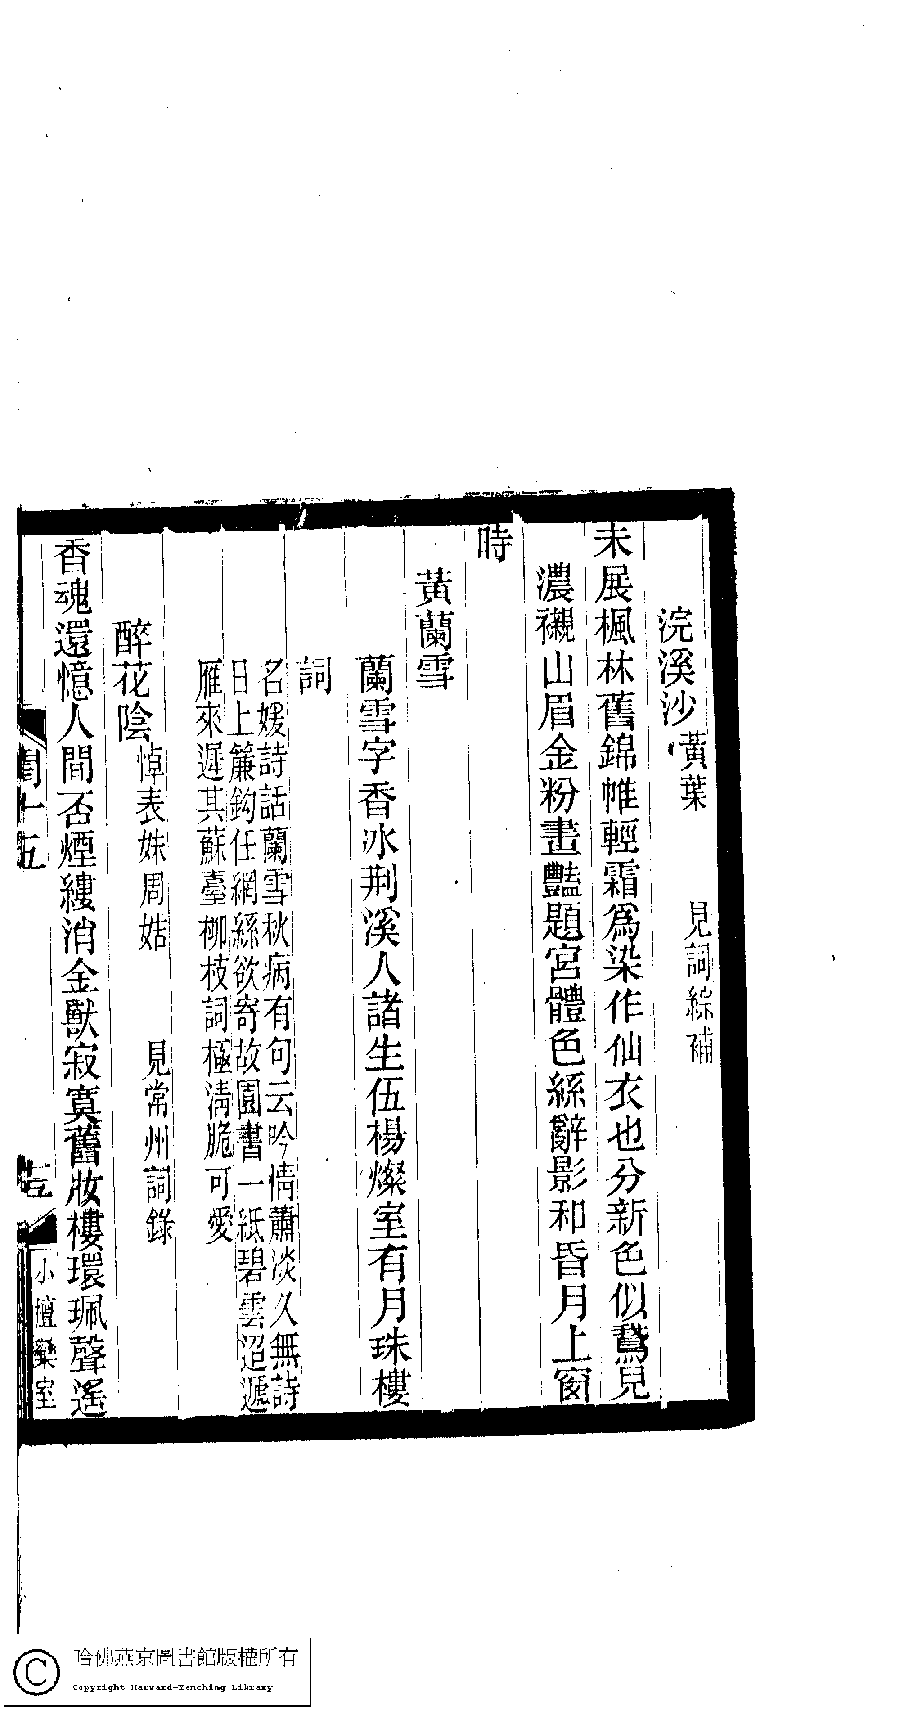 浣溪沙 黃葉 見詞綜補
未展楓林舊錦帷輕霜爲染作仙衣也分新色似鵞兒
濃襯山眉金粉畫豔題宮體色絲辭影和昏月上窗
時
黃蘭雪
蘭雪字香冰荆溪人諸生伍楊燦室有月珠樓
詞
名媛詩話蘭雪秋病有句云吟情蕭淡久無詩
日上簾鈎任網絲欲寄故園書一紙碧雲迢遞
雁來遲其蘇臺柳枝詞極淸脆可愛
醉花陰 悼表妹周姞 見常州詞錄
香魂還憶人間否煙縷消金獸寂寞舊妝樓環珮聲遙
閨十五
小檀欒室
哈佛燕京圖書館版權所有
Copyright Harvard-Yenching Library